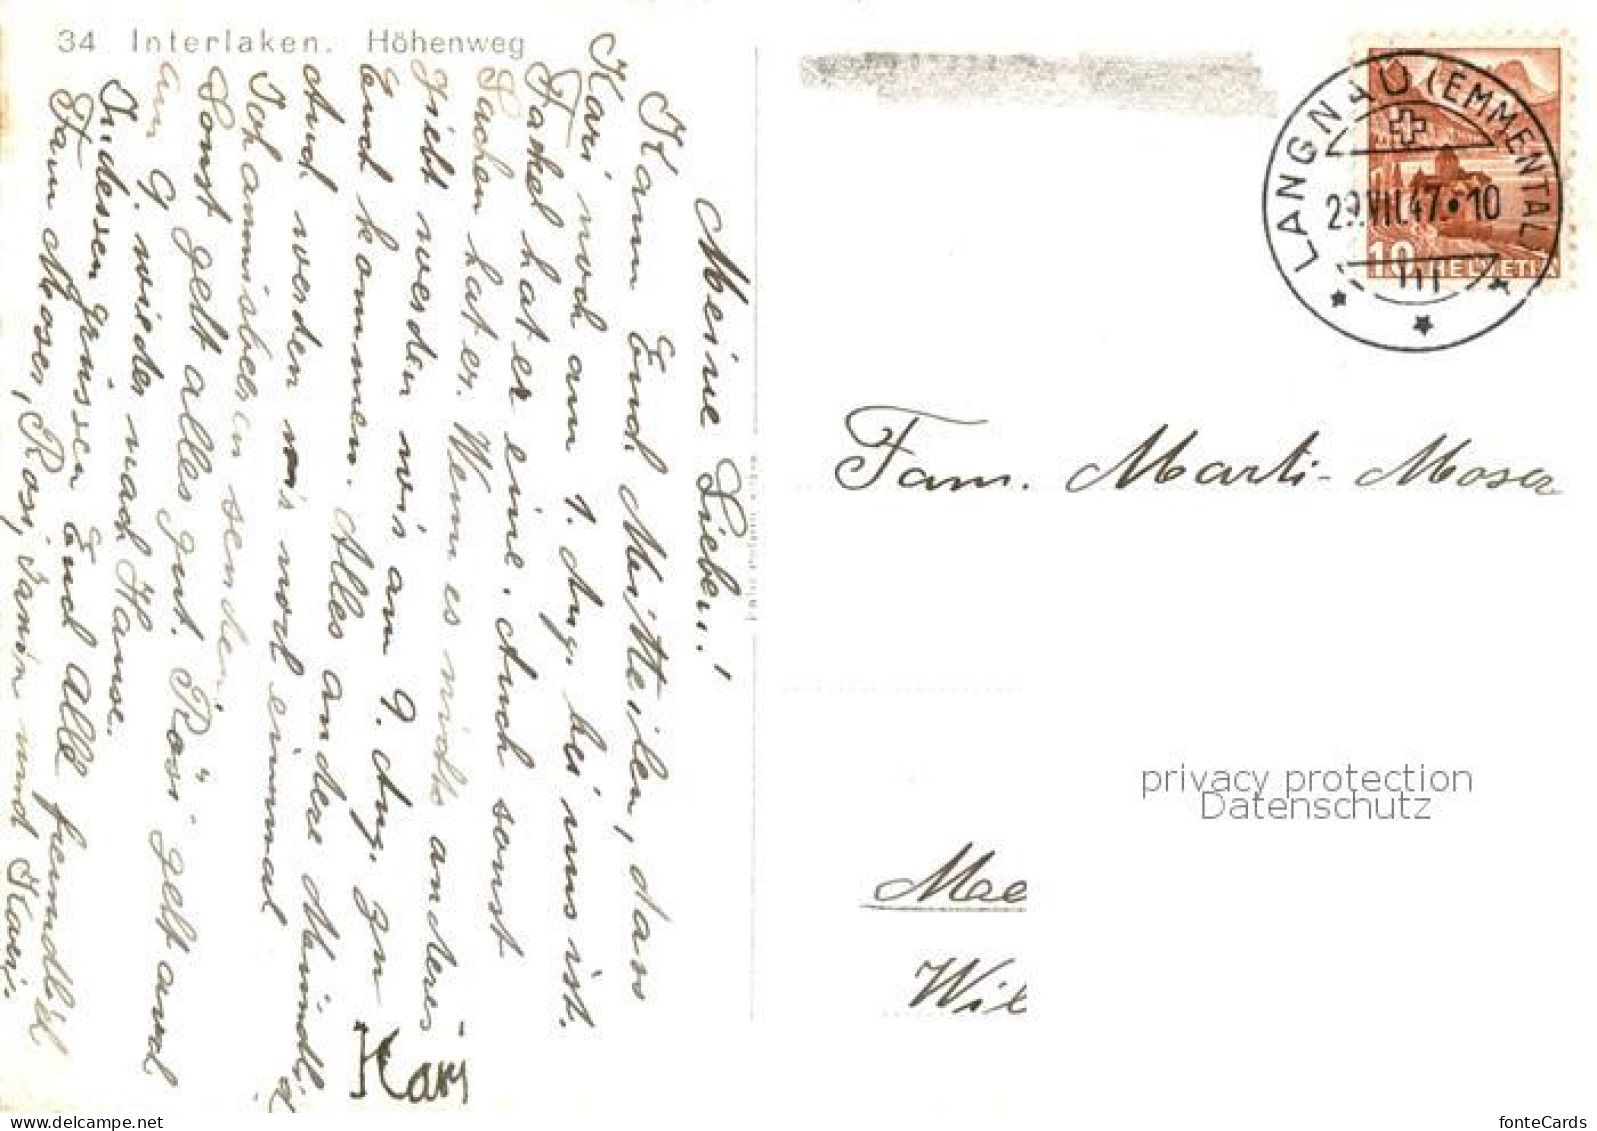 34 Interlaken. Höhenweg
Meine Lieben!
Kann Euch Mitteilen, dass
Kari noch am 1. Aug. bei uns ist.
Fackel hat er eine. Auch sonst
Sachen hat er. Wenn es nichts anderes
giebt werden wir am 9. Aug. zu
Euch kommen. Alles andere Mündlich
Auch werden wir noch einmal
senden.
Sonst gelt alles gut. Rösi gelt auch
am 9. wieder nach Hause.
Indessen grüssen Euch alle freundlich
Fam Moser, Rosi, und Kari.
Kari
LANGNAU (EMMENTAL)
29.VII.47.10
10 HELVETIA
Fam. Marti-Moser
Mae
Wil
privacy protection
Datenschutz
fonteCards